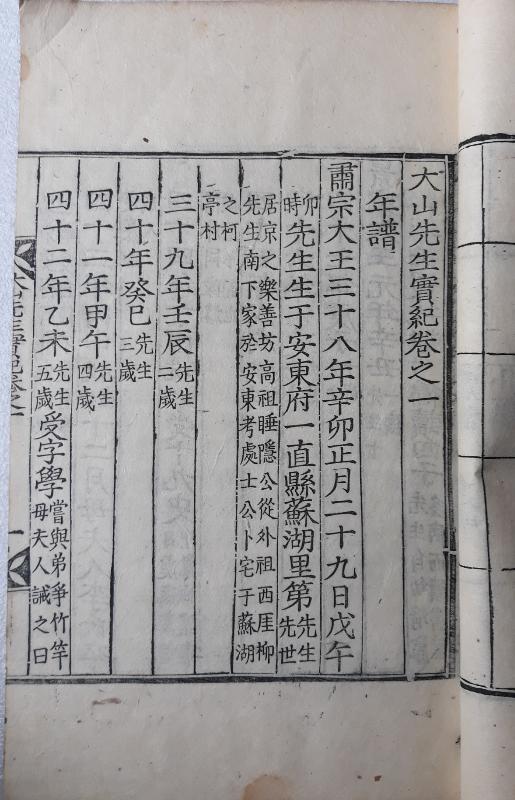 大山先生實紀卷之一
年譜
肅宗大王三十八年辛卯正月二十九日戊午
卯時先生生于安東府一直縣蘇湖里第先生先世
居京之樂善坊高祖睡隱公從外祖西厓柳
先生南下家於安東考處士公卜宅于蘇湖
之柯
亭村
三十九年壬辰先生二歲
四十年癸巳先生三歲
四十一年甲午先生四歲
四十二年乙未先生五歲受字學嘗與弟爭竹竿
母夫人誡之曰
大山先生實紀卷之一
一